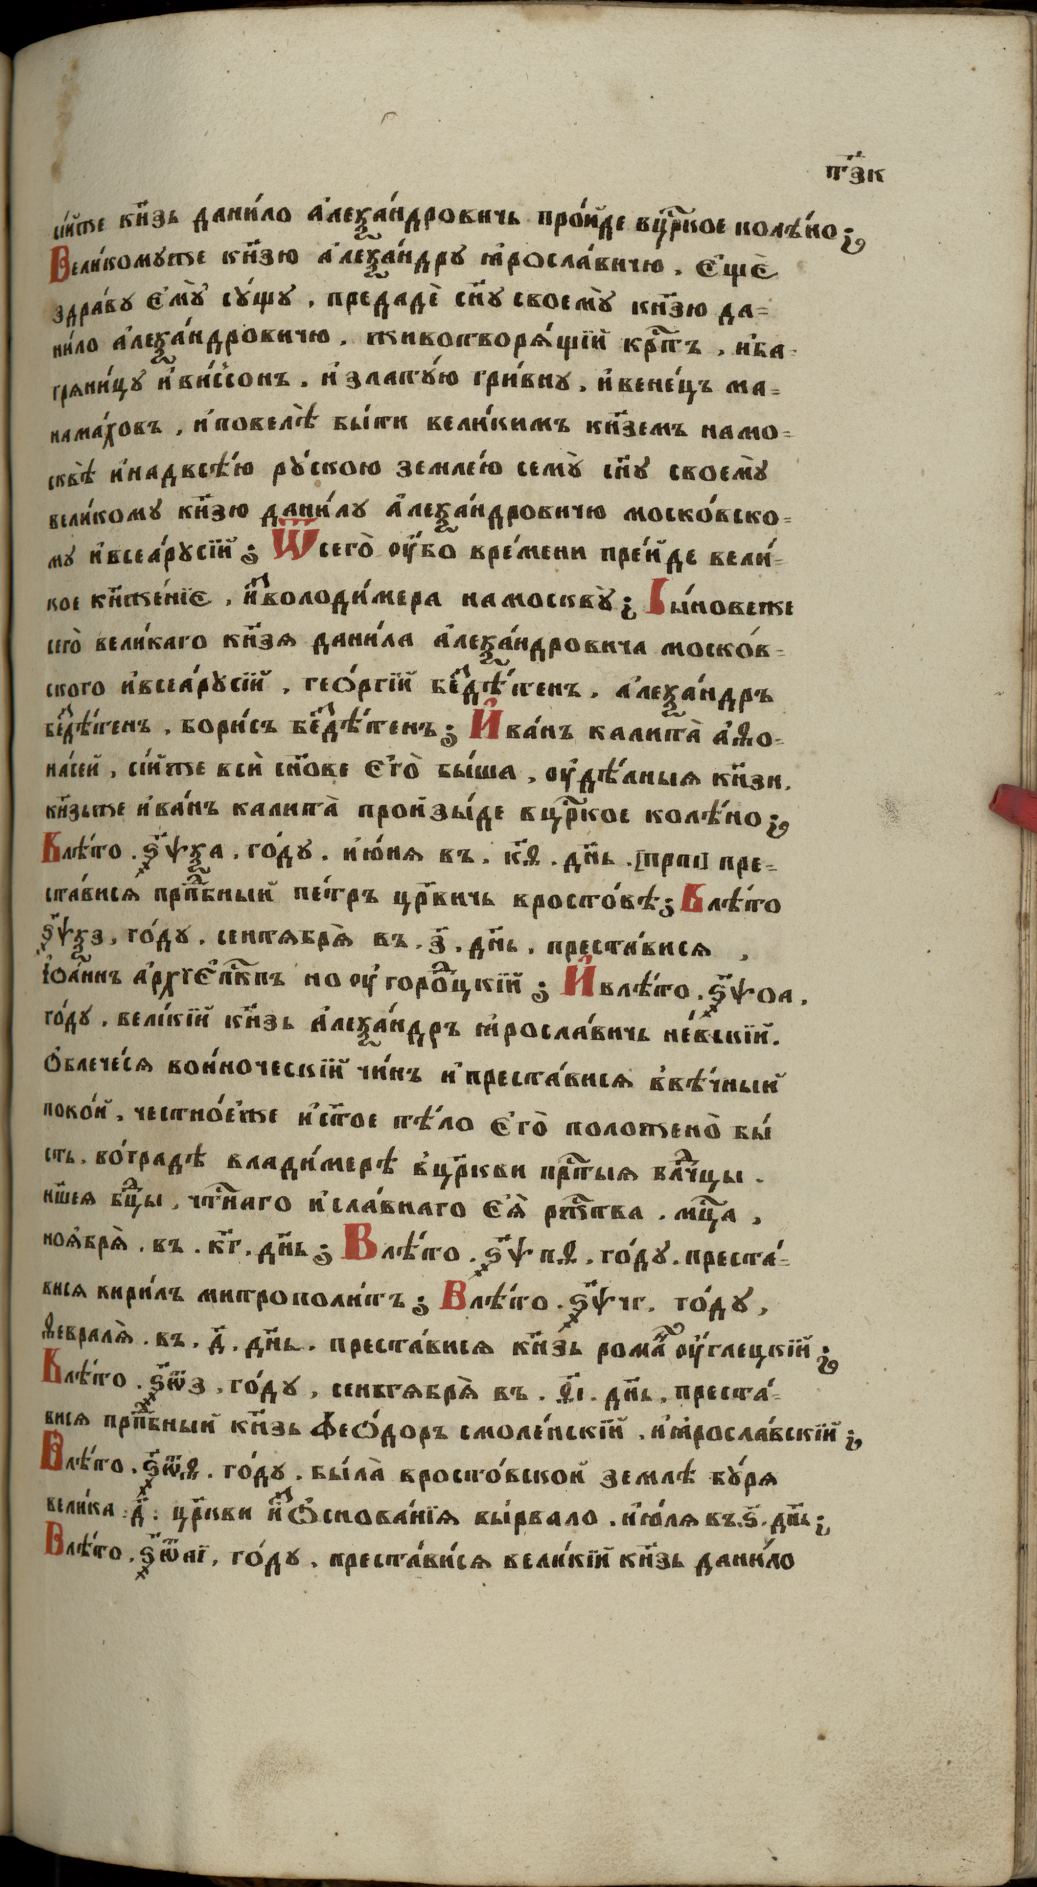 п҃зк
сі́йже кн҃зь дани́ло а҆леѯа́ндровичь про́йде вцр҃кое колѣ́но;
Вели́комуже кн҃зю а҆леѯа́ндру ꙗ҆росла́вичю. є҆щѐ
здра́ву є҆мꙋ̀ сꙋ́щꙋ, предадѐ сн҃ꙋ своемꙋ̀ кн҃зю да=
ни́ло а҆леѯа́ндровичю. животворѧ́щїй крⷭ҇тъ, и҆ба
грѧни́цꙋ и҆ви́ссонъ. и҆златꙋ́ю гри́внꙋ, и҆вене́цъ ма=
нама́ховъ, и҆повелѣ̀ бы́ти вели́кимъ кн҃земъ намо=
сквѣ̀ и҆надвсѣ́ю рꙋ́скою земле́ю семꙋ̀ сн҃ꙋ своемꙋ̀
вели́комꙋ кн҃зю дани́лꙋ а҆леѯа́ндровичю моско́вско=
мꙋ и҆всеа́рꙋсїй; Ѿсего̀ ᲂу҆́бо вре́мени пре́йде вели́=
кое кн҃же́нїе, и҆зⸯволоди́мера намосквꙋ̀; Сы́новеже
сего̀ вели́каго кн҃зѧ дани́ла а҆леѯа́ндровича моско́в=
ского и҆всеа́рꙋсїй, гео́ргїй безⸯдѣ́тенъ, а҆леѯа́ндръ
безⸯдѣ́тенъ, бори́съ безⸯдѣ́тенъ; И҆ва́нъ калита̀ а҆ѳо=
на́сей, сі́йже всѝ сн҃ове є҆го̀ бы́ша, ᲂу҆дѣ́лныѧ кн҃зи.
кн҃зьже и҆ва́нъ калита̀ произы́де вцр҃кое колѣ́но;
Влѣ́то. ҂ѕ҃ѱѯа. го́дꙋ. и҆ю́нѧ въ. к҃ѳ. дн҃ь. [прпⷣ] пре=
ста́висѧ прпⷣбный пе́тръ цр҃вичь вросто́вѣ; Влѣ́то
҂ѕ҃ѱѯз, го́дꙋ. сентѧбрѧ̀ въ. з҃. дн҃ь. преста́висѧ,
І҆ѡа́ннъ а҆рхїепⷭ҇кпъ ноᲂу҆горо́дцкїй; И҆влѣ́то. ҂ѕ҃ѱоа.
го́дꙋ. вели́кїй кн҃зь а҆леѯа́ндръ ꙗ҆росла́вичь не́вскїй.
Ѡ҆блече́сѧ вои́ноческїй чи́нъ и҆преста́висѧ ввѣ́чный
поко́й, честно́еже и҆ст҃ое тѣ́ло є҆го̀ положено̀ бы́
сть. во́градѣ влади́мерѣ вцр҃кви прⷭ҇тыѧ влⷣчцы.
нш҃еѧ бцⷣы, чтⷭ҇наго и҆сла́внаго є҆ѧ̀ ржⷭ҇тва. мцⷭ҇а,
ноѧ҆брѧ̀. въ. к҃г. дн҃ь; Влѣ́то. ҂ѕ҃ѱпѳ. го́дꙋ. преста́=
висѧ кири́лъ митрополи́тъ; Влѣ́то. ҂ѕ҃ѱчг. го́дꙋ,
ѳевралѧ̀. въ. д҃. дн҃ь. преста́висѧ кн҃зь рома́нъ ᲂу҆глецкїй;
Влѣ́то. ҂ѕ҃ѿз, го́дꙋ, сентѧбрѧ̀ въ. ѳ҃і. дн҃ь, преста́=
висѧ прпⷣбный кн҃зь Ѳео́доръ смоле́нскїй, и҆ꙗ҆росла́вскїй;
Влѣ́то. ҂ѕ҃ѿѳ. го́дꙋ. бы́ла̀ вросто́вской землѣ̀ бꙋ́рѧ
вели́ка. д҃. цр҃кви и҆зⸯѡ҆снова́нїѧ вы́рвало. и҆ю́лѧ въ. ѕ҃. дн҃ь;
Влѣ́то. ҂ѕ҃ѿаї, го́дꙋ. преста́висѧ вели́кїй кн҃зь дани́ло